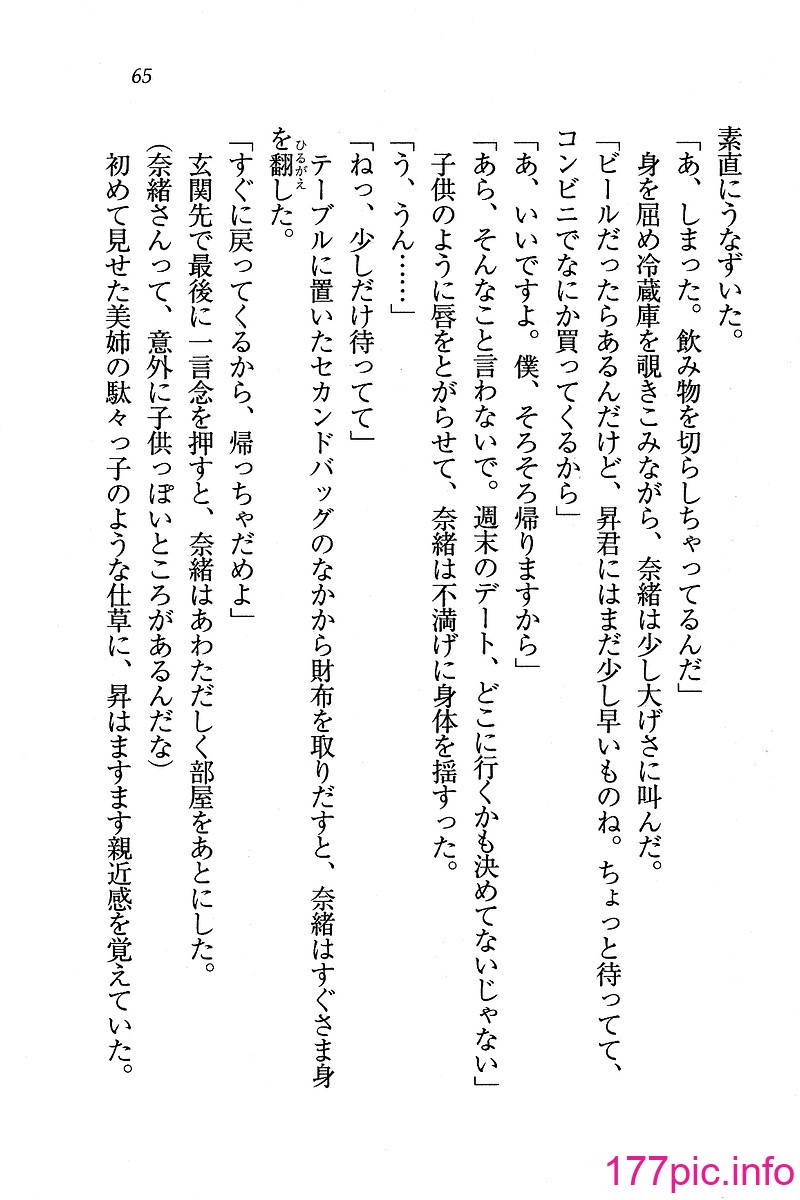 65
素直にうなずいた。
「あ、しまった。飲み物を切らしちゃってるんだ」
身を屈め冷蔵庫を覗きこみながら、奈緒は少し大げさに叫んだ。
「ビールだったらあるんだけど、昇君にはまだ少し早いものね。ちょっと待ってて、
コンビニでなにか買ってくるから」
「あ、いいですよ。僕、そろそろ帰りますから」
「あら、そんなこと言わないで。週末のデート、どこに行くかも決めてないじゃない」
子供のように唇をとがらせて、奈緒は不満げに身体を揺すった。
「う、うん……」
「ねっ、少しだけ待ってて」
テーブルに置いたセカンドバッグのなかから財布を取りだすと、奈緒はすぐさま身
を翻した。
ひるがえ
「すぐに戻ってくるから、帰っちゃだめよ」
玄関先で最後に一言念を押すと、奈緒はあわただしく部屋をあとにした。
（奈緒さんって、意外に子供っぽいところがあるんだな）
初めて見せた美姉の駄々っ子のような仕草に、昇はますます親近感を覚えていた。
177pic.info